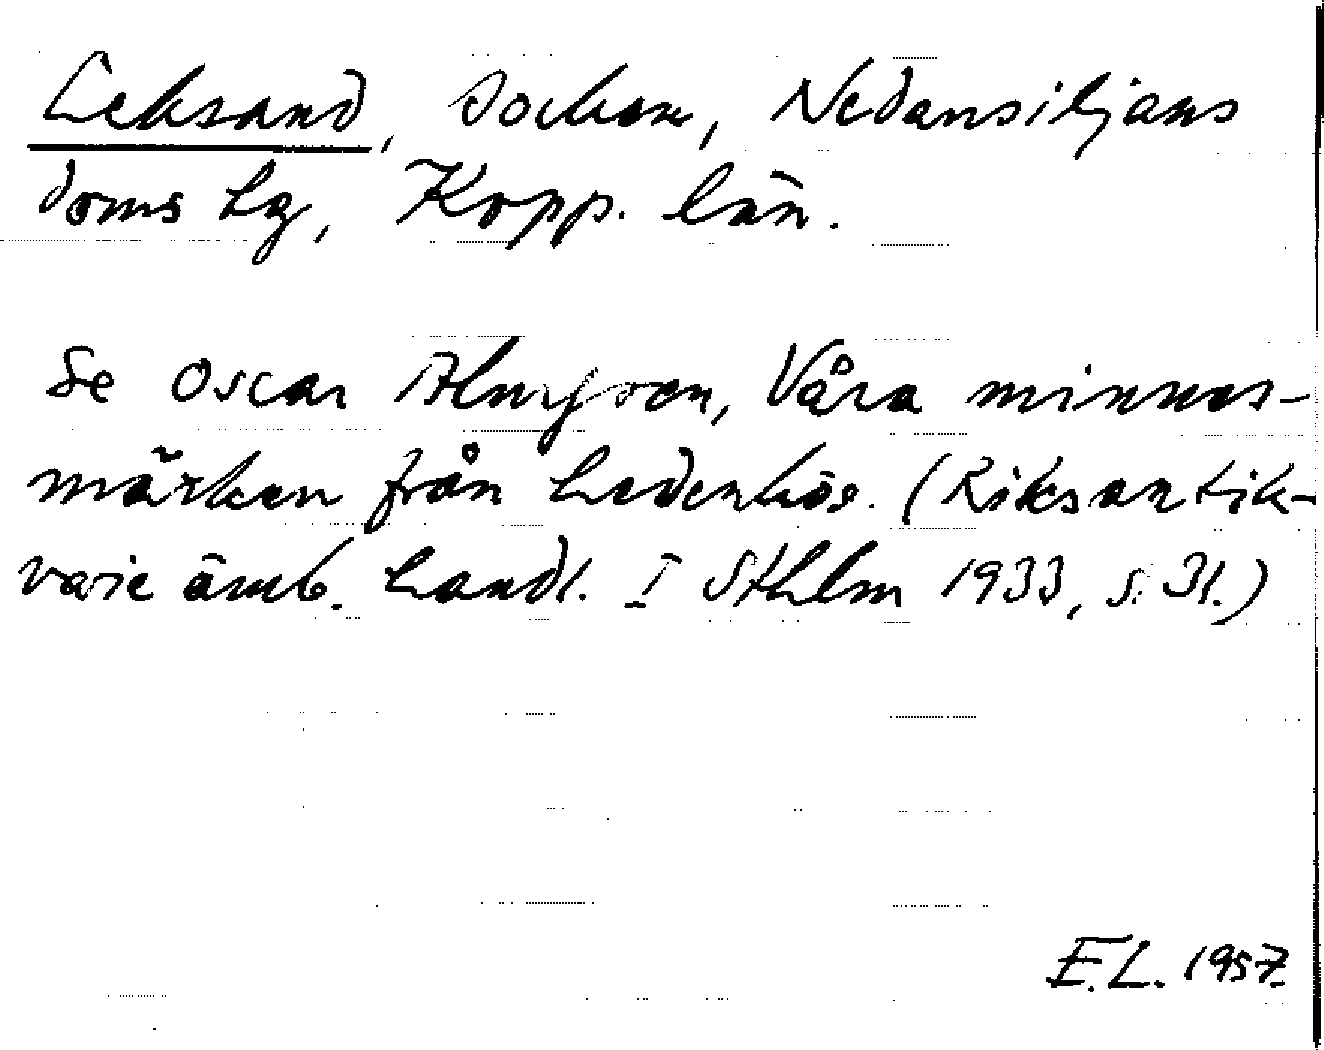 Leksand, socken, Nedansiljans
doms hg, Kopp. län.
Se Oscar Almgren, Våra minnes-
märken från hedenhös. (Riksantik-
varie ämb. handl. I Sthlm 1933, s. 31.)
E.L. 1957.